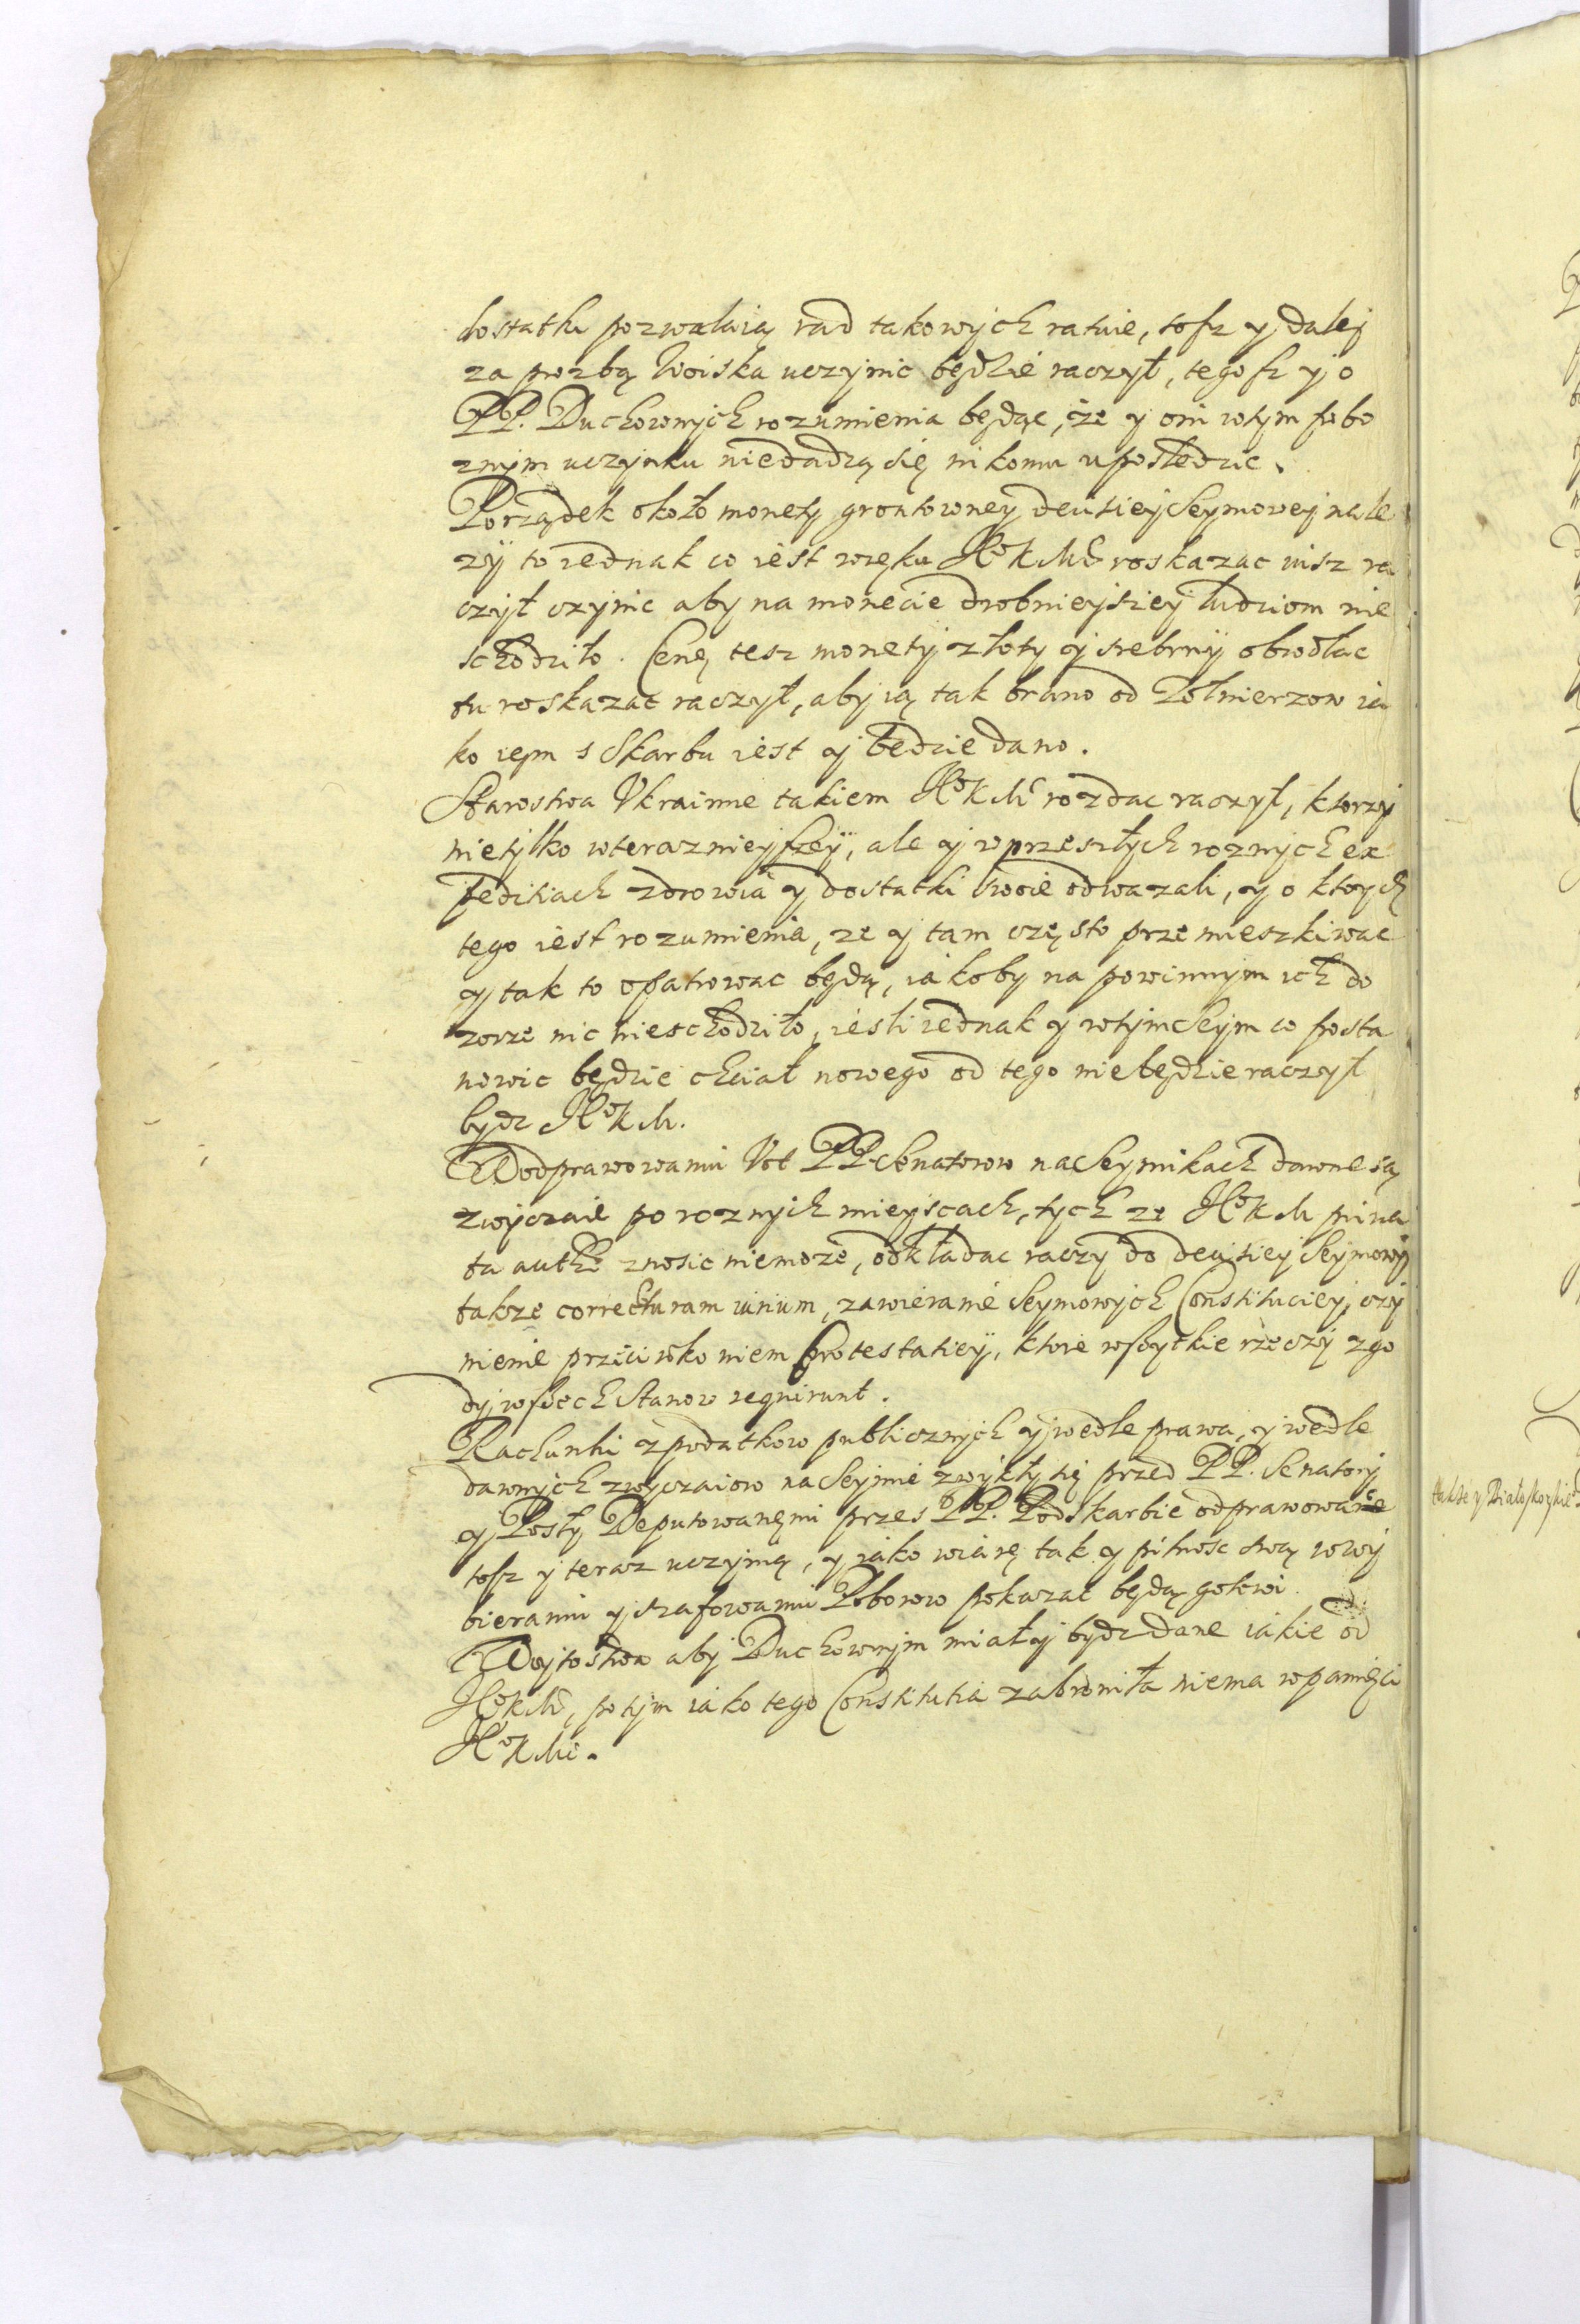 dostatku pozwalaią rad takowych ratuie, tosz y daley
za prozbą Woiska uczynic będzie raczył, tegosz y o
PP. Duchownych rozumienia będąc, że y oni wtym pobo
znym uczynku niedadzą się nikomu uposledzic.
Porządek około monety grontowney decisiey Seymowey nale
zy to iednak co iest wręku JKoMći roskazac iusz ra
czył czynic aby na monecie drobnieyszey ludziom nie
schodziło. Cenę tesz monety złoty y srebrny obwołac
tu roskazac raczył, aby ią tak brano od Zołnierzow ia
ko iem s Skarbu iest y będzie dano.
Starostwa Vkrainne takiem JKoMć rozdac raczył, ktorzy
nietylko wteraznieyszey, ale y wprzeszłych roznych ex
peditiach zdrowia y dostatki swoie odwazali, y o ktorych
tego iest rozumienia, ze y tam często przemieszkiwac
y tak to opatrowac będą, iakoby na powinnym ich do
zorze nic nieschodziło, iesli iednak y wtym Seym co posta
nowic będzie chciał nowego od tego niebędzie raczył
bydz JKoM.
W odprawowaniu Vot PP Senatorow na Seymikach dawne są
zwyczaie po roznych mieyscach, tych ze JKoM priua
ta auth: znosic niemoże, odkładac raczy do decisiey Seymowy
takze correcturam iurium, zawieranie Seymowych Constituciey, czy
nienie przeciwko niem protestatiey, ktore wszytkie rzeczy zgo
dy wszech Stanow requirunt.
Rachunki z podatkow publicznych y wedle prawa, y wedle
dawnych zwyczaiow na Seymie zwykły się przed PP. Senatory
y Posły Deputowanemi przes PP. Podskarbie odprawowane
tosz y teraz uczynią, y iako wiarę tak y pilnosc swą wwy
bieraniu y szafowaniu Poborow pokazac będą gotowi.
Woytostwa aby Duchownym miały bydz dane iakie od
JKoMć, potym iako tego Constitutia zabroniła niema wpamięci
JKoMć.